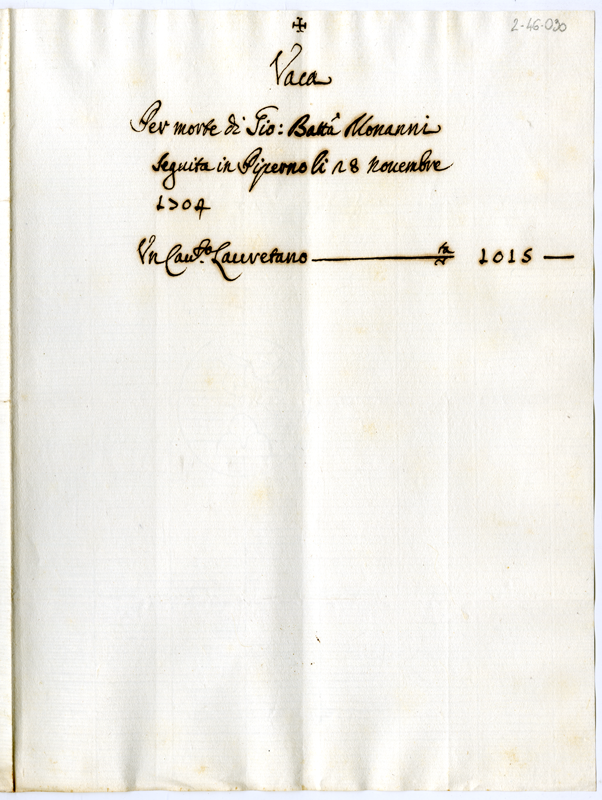 ✠
2-46-030
Vaca
Per morte di Gio: Batta Monanni
seguita in Piperno li 28 Novembre
1704
Un Cau.to Lauretano — 1015 —